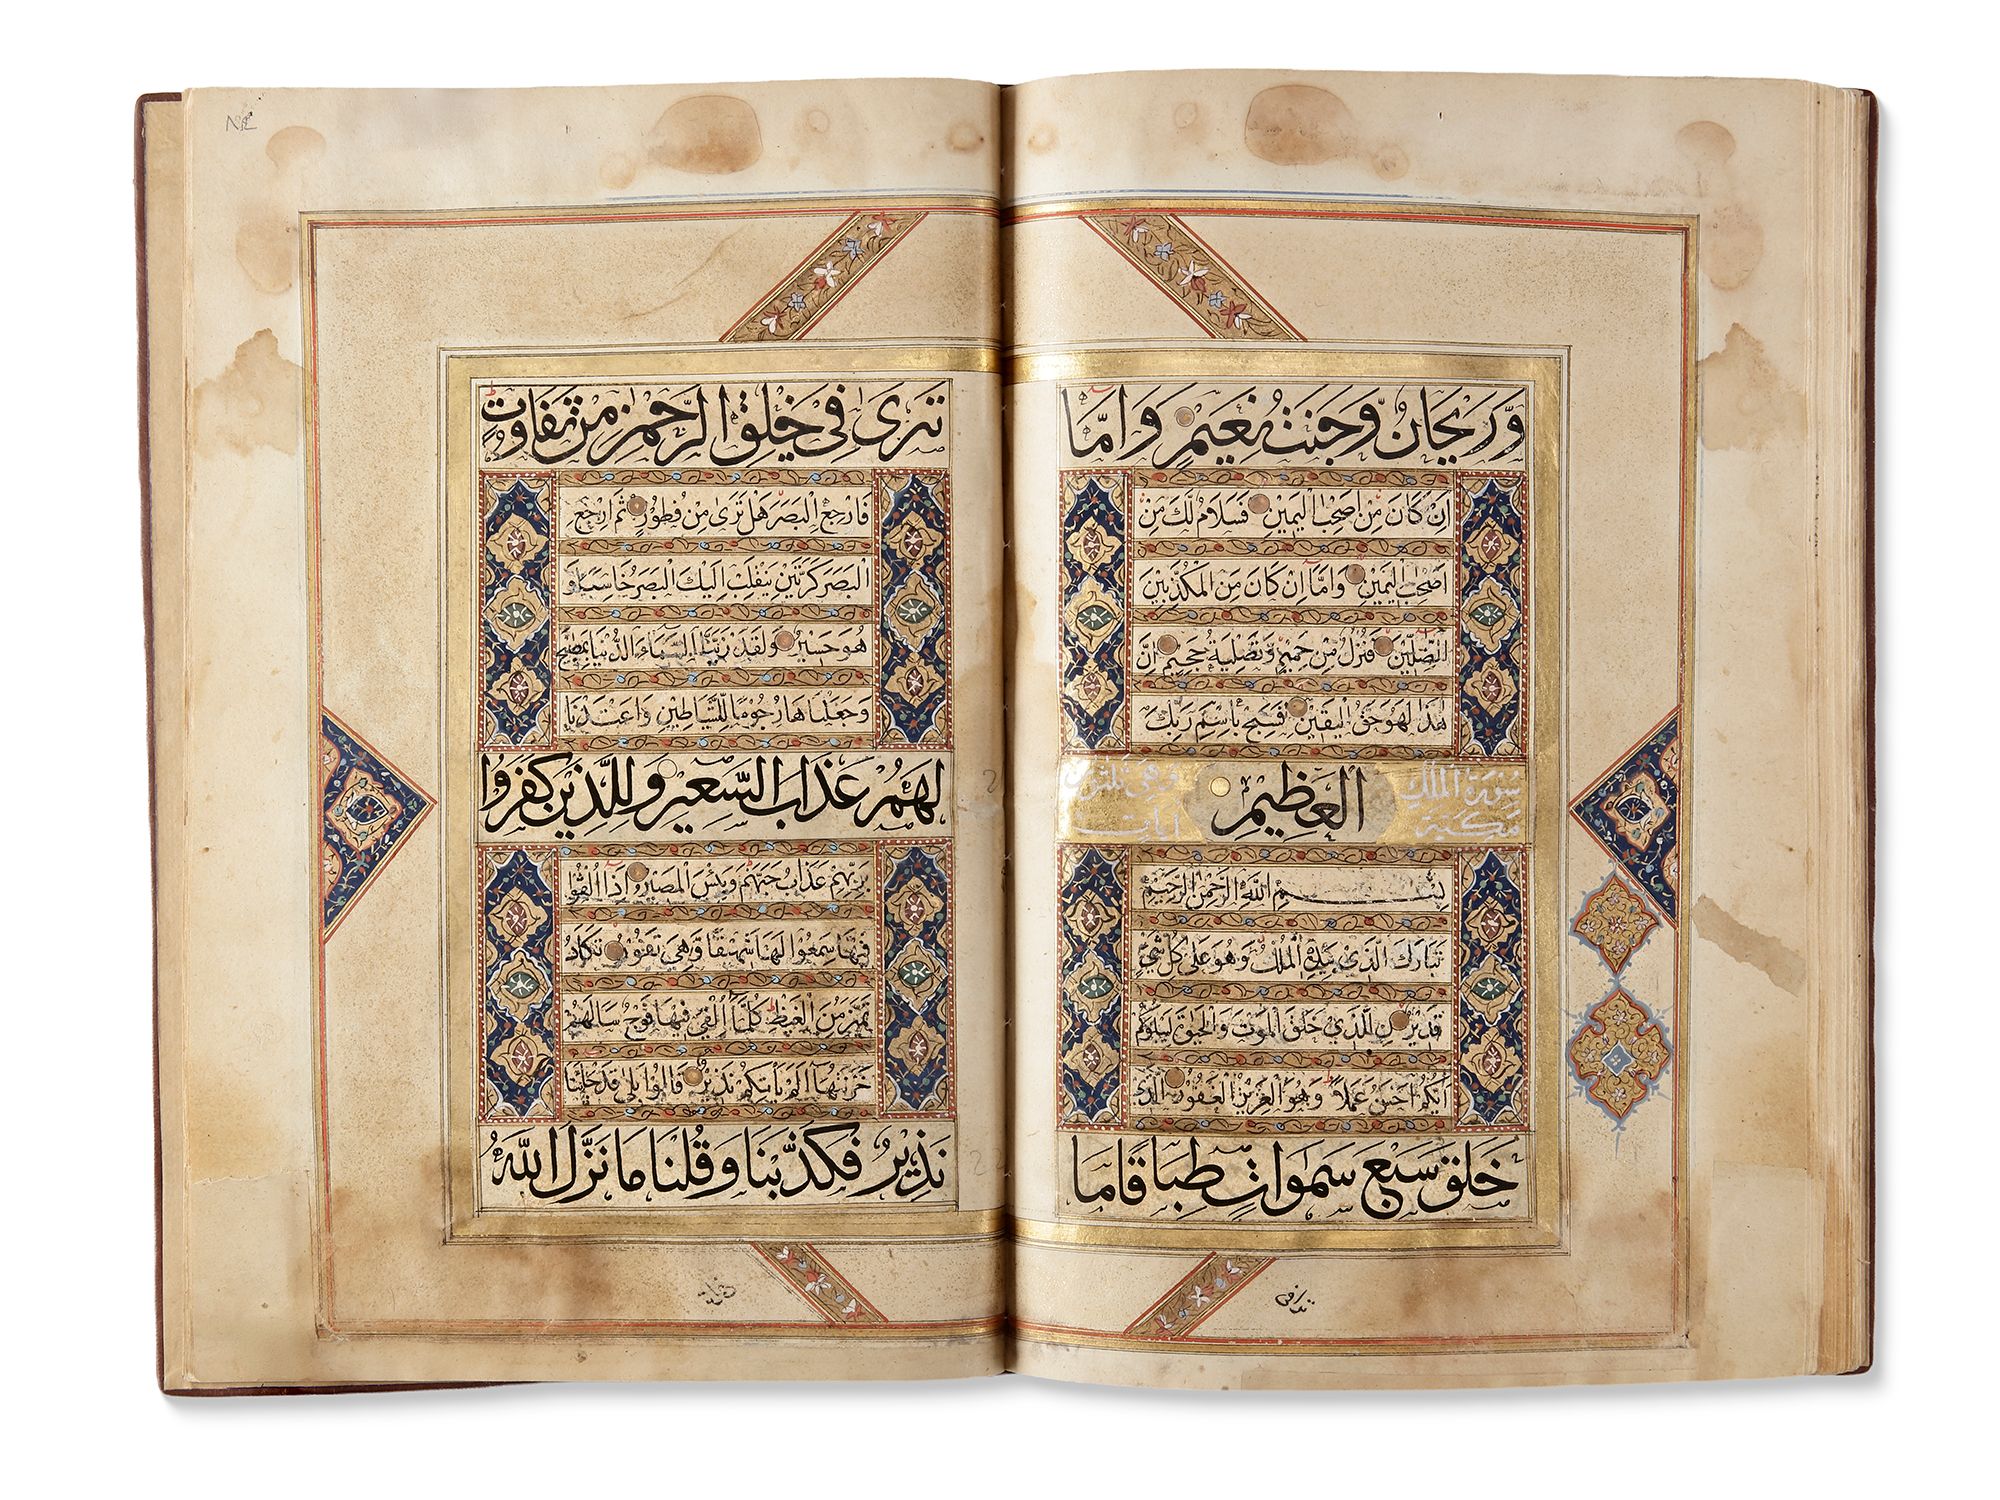 وَّرَيْحَانٌ وَّجَنَّتُ نَعِيْمٍ وَاَمَّا
اِنْ كَانَ مِنْ اَصْحٰبِ الْيَمِيْنِ فَسَلَامٌ لَّكَ مِنْ
اَصْحٰبِ الْيَمِيْنِ وَاَمَّا اِنْ كَانَ مِنَ الْمُكَذِّبِيْنَ
الضَّالِّيْنَ فَنُزُلٌ مِّنْ حَمِيْمٍ وَّتَصْلِيَةُ جَحِيْمٍ اِنَّ
هٰذَا لَهُوَ حَقُّ الْيَقِيْنِ فَسَبِّحْ بِاسْمِ رَبِّكَ
الْعَظِيْمِ
سُوْرَةُ الْمُلْكِ مَكِّيَّةٌ وَهِيَ ثَلٰثُوْنَ اٰيَات
بِسْمِ اللهِ الرَّحْمٰنِ الرَّحِيْمِ
تَبَارَكَ الَّذِيْ بِيَدِهِ الْمُلْكُ وَهُوَ عَلٰى كُلِّ شَيْءٍ
قَدِيْرٌ الَّذِيْ خَلَقَ الْمَوْتَ وَالْحَيٰوةَ لِيَبْلُوَكُمْ
اَيُّكُمْ اَحْسَنُ عَمَلًا وَهُوَ الْعَزِيْزُ الْغَفُوْرُ الَّذِيْ
خَلَقَ سَبْعَ سَمٰوَاتٍ طِبَاقًا مَا
تَرٰى فِيْ خَلْقِ الرَّحْمٰنِ مِنْ تَفَاوُتٍ
فَارْجِعِ الْبَصَرَ هَلْ تَرٰى مِنْ فُطُوْرٍ ثُمَّ ارْجِعِ
الْبَصَرَ كَرَّتَيْنِ يَنْقَلِبْ اِلَيْكَ الْبَصَرُ خَاسِئًا وَّ
هُوَ حَسِيْرٌ وَلَقَدْ زَيَّنَّا السَّمَاءَ الدُّنْيَا بِمَصَابِيْحَ
وَجَعَلْنَاهَا رُجُوْمًا لِّلشَّيَاطِيْنِ وَاَعْتَدْنَا
لَهُمْ عَذَابَ السَّعِيْرِ وَلِلَّذِيْنَ كَفَرُوْا
بِرَبِّهِمْ عَذَابُ جَهَنَّمَ وَبِئْسَ الْمَصِيْرُ اِذَا اُلْقُوْا
فِيْهَا سَمِعُوْا لَهَا شَهِيْقًا وَّهِيَ تَفُوْرُ تَكَادُ
تَمَيَّزُ مِنَ الْغَيْظِ كُلَّمَا اُلْقِيَ فِيْهَا فَوْجٌ سَاَلَهُمْ
خَزَنَتُهَا اَلَمْ يَاْتِكُمْ نَذِيْرٌ قَالُوْا بَلٰى قَدْ جَاءَنَا
نَذِيْرٌ فَكَذَّبْنَا وَقُلْنَا مَا نَزَّلَ اللهُ